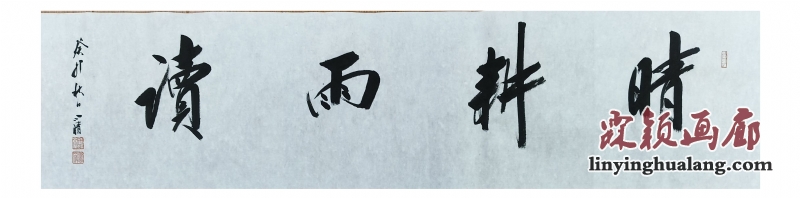 晴耕雨讀
癸卯秋日
霖颖画廊
linyinghualang.com